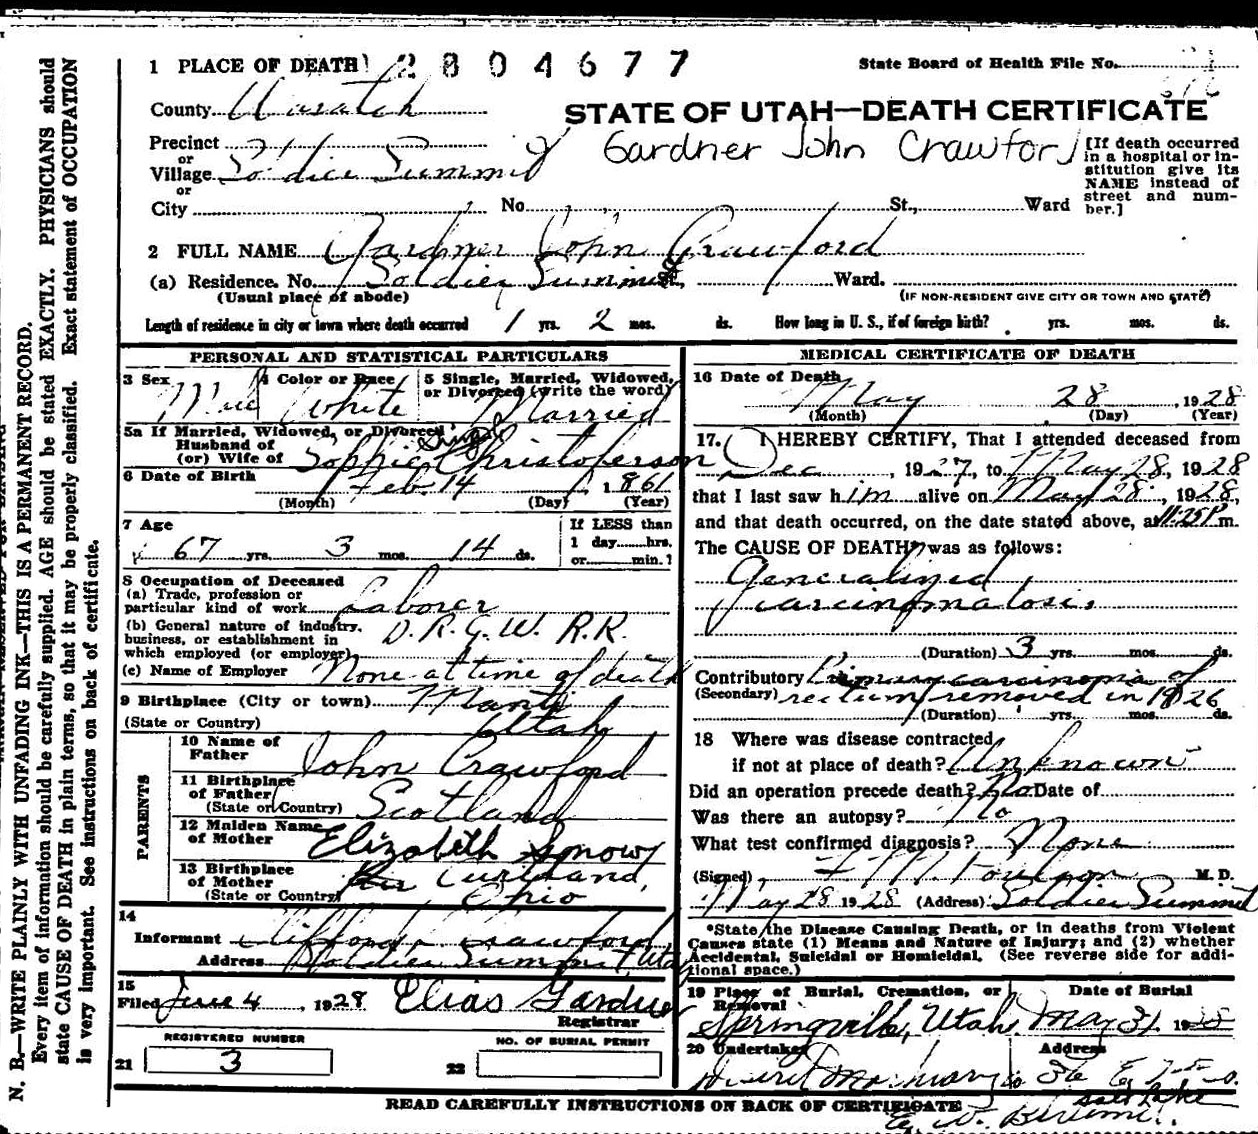 1 PLACE OF DEATH 2804677
State Board of Health File No.
County Wasatch
STATE OF UTAH—DEATH CERTIFICATE
Precinct
or
Village Soldier Summit
Gardner John Crawford
[If death occurred in a hospital or institution give its NAME instead of street and number.]
or
City No. St., Ward
2 FULL NAME Gardner John Crawford
(a) Residence. No. Soldier Summit St., Ward.
(Usual place of abode)
(IF NON-RESIDENT GIVE CITY OR TOWN AND STATE)
Length of residence in city or town where death occurred 1 yrs. 2 mos. ds. How long in U. S., if of foreign birth? yrs. mos. ds.
PERSONAL AND STATISTICAL PARTICULARS
3 Sex Male
4 Color or Race White
5 Single, Married, Widowed, or Divorced (write the word) Married
5a If Married, Widowed, or Divorced
Husband of
(or) Wife of Sophie Christoferson
6 Date of Birth Feb. 14, 1861
(Month) (Day) (Year)
7 Age
67 yrs. 3 mos. 14 ds.
If LESS than
1 day......hrs.
or......min.?
8 Occupation of Deceased
(a) Trade, profession or
particular kind of work Laborer
(b) General nature of industry,
business, or establishment in
which employed (or employer) D. R. G. W. R.R.
(c) Name of Employer None at time of death
9 Birthplace (City or town) Manti
(State or Country) Utah
PARENTS
10 Name of
Father John Crawford
11 Birthplace
of Father
(State or Country) Scotland
12 Maiden Name
of Mother Elizabeth Snow
13 Birthplace
of Mother
(State or Country) Ohio
14
Informant Clifford Crawford
Address Soldier Summit Utah
15
Filed June 4, 1928 Elias Gardner
Registrar
REGISTERED NUMBER
21 3
NO. OF BURIAL PERMIT
22
MEDICAL CERTIFICATE OF DEATH
16 Date of Death
May 28, 1928
(Month) (Day) (Year)
17. I HEREBY CERTIFY, That I attended deceased from
Dec, 1927, to May 28, 1928
that I last saw him alive on May 28, 1928,
and that death occurred, on the date stated above, at 11.25P m.
The CAUSE OF DEATH* was as follows:
Generalized
carcinomatosis
(Duration) 3 yrs. mos. ds.
Contributory Primary carcinoma of
(Secondary) rectum removed in 1926
(Duration) yrs. mos. ds.
18 Where was disease contracted
if not at place of death? Unknown
Did an operation precede death? No Date of
Was there an autopsy? No
What test confirmed diagnosis? None
(Signed) M. D.
May 28 1928 (Address) Soldier Summit
*State the Disease Causing Death, or in deaths from Violent
Causes state (1) Means and Nature of Injury; and (2) whether
Accidental, Suicidal or Homicidal. (See reverse side for addi-
tional space.)
19 Place of Burial, Cremation, or Removal
Date of Burial
Springville, Utah May 31, 1928
20 Undertaker
Address
36 E 7 So.
Salt Lake
READ CAREFULLY INSTRUCTIONS ON BACK OF CERTIFICATE
N. B.—WRITE PLAINLY WITH UNFADING INK—THIS IS A PERMANENT RECORD.
Every item of information should be carefully supplied. AGE should be stated EXACTLY. PHYSICIANS should
state CAUSE OF DEATH in plain terms, so that it may be properly classified. Exact statement of OCCUPATION
is very important. See instructions on back of certificate.